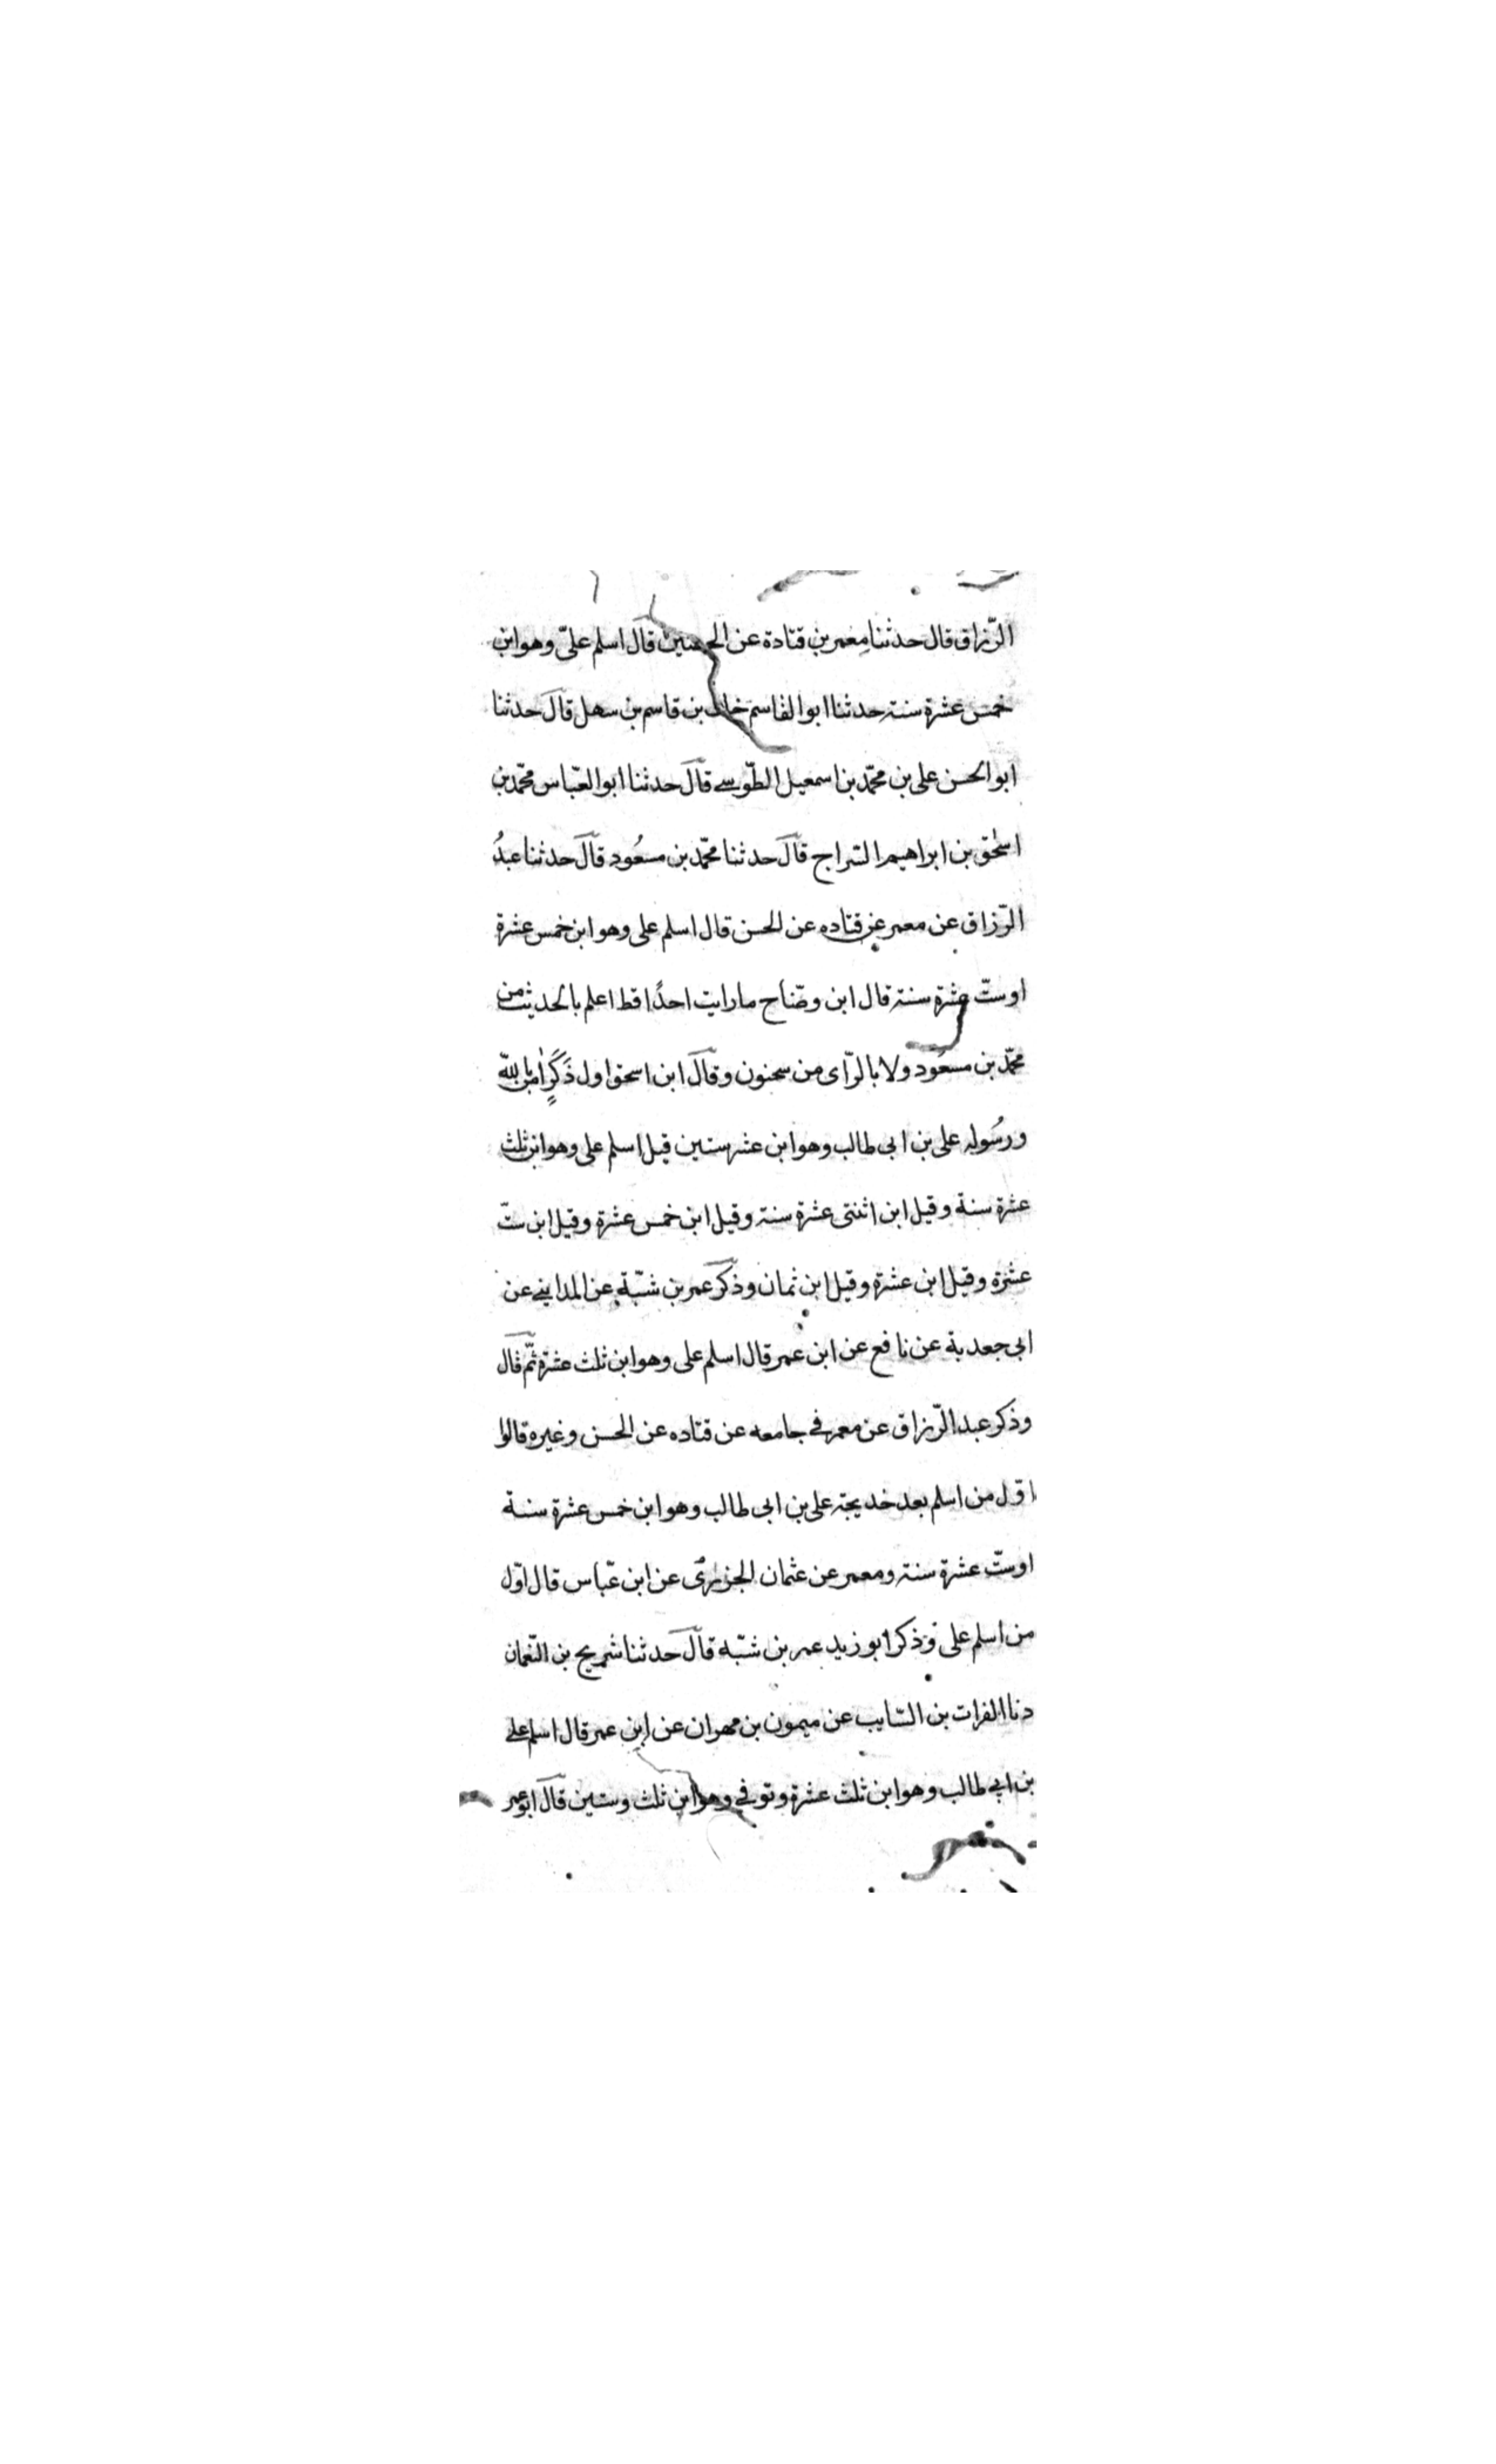 الرّزاق قال حدثنا معمر بن قتادة عن الحسن قال اسلم علىّ وهو ابن
خمس عشرة سنة حدثنا ابوالقاسم خلف بن قاسم بن سهل قال حدثنا
ابوالحسن على بن محمّد بن اسمعيل الطّوسے قال حدثنا ابوالعبّاس محمّد بن
اسحٰق بن ابراهيم السّراج قال حدثنا محمّد بن مسعُود قال حدثنا عبدُ
الرّزاق عن معمر عن قتاده عن الحسن قال اسلم على وهو ابن خمس عشرة
اوستّ عشرة سنة قال ابن وضّاح ما رايت احدًا قط اعلم بالحديث من
محمّد بن مسعُود ولا بالرّاى من سحنون وقال ابن اسحق اول ذَكَرٍ اٰمن باللّه
ورسُوله على بن ابى طالب وهو ابن عشر سنين قيل اسلم على وهو ابن ثلث
عشرة سنة وقيل ابن اثنتى عشرة سنة وقيل ابن خمس عشرة وقيل ابن ستّ
عشرة وقيل ابن عشرة وقيل ابن ثمان وذكر عمر بن شبّة عن المداينے عن
ابى جعدبة عن نافع عن ابن عمر قال اسلم على وهو ابن ثلث عشرة ثمّ قال
وذكر عبد الرّزاق عن معمر فى جامعه عن قتاده عن الحسن وغيره قالوا
اوّل من اسلم بعد خديجة على بن ابى طالب وهو ابن خمس عشرة سنة
اوستّ عشرة سنة ومعمر عن عثمان الجزرى عن ابن عبّاس قال اوّل
من اسلم على وَذكر ابو زيد عمر بن شبّه قال حدثنا شريح بن النّعمان
دنا الفرات بن السّايب عن ميمون بن مهران عن ابن عمر قال اسلم علے
بن ابى طالب وهو ابن ثلث عشرة وتوفى وهو ابن ثلث وستين قال ابوعمر